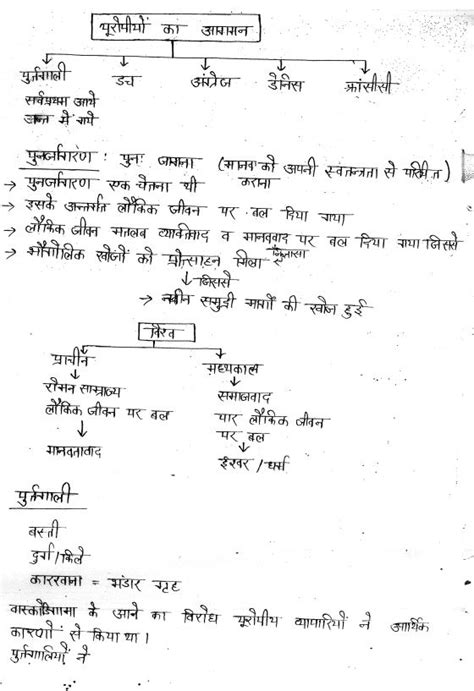 यूरोपीयों का आगमन
पुर्तगाली डच अंग्रेज डेनिस फ्रांसीसी
सर्वप्रथम आये
अन्त में गये
पुनर्जागरण : पुनः जागना (मानव को अपनी स्वतन्त्रता से परिचित)
कराना
→ पुनर्जागरण एक चेतना थी
→ इसके अन्तर्गत लौकिक जीवन पर बल दिया गया
→ लौकिक जीवन मतलब व्यक्तिवाद व मानववाद पर बल दिया गया जिससे
जिज्ञासा
→ भौगोलिक खोजों को प्रोत्साहन मिला
जिससे
→ नवीन समुद्री मार्गों की खोज हुई
विश्व
प्राचीन मध्यकाल
रोमन साम्राज्य समाजवाद
लौकिक जीवन पर बल पार लौकिक जीवन
पर बल
मानवतावाद ईश्वर / धर्म
पुर्तगाली
बस्ती
दुर्ग/किले
कारखाना = भंडार गृह
वास्कोडिगामा के आने का विरोध यूरोपीय व्यापारियों ने आर्थिक
कारणों से किया था।
पुर्तगालियों ने